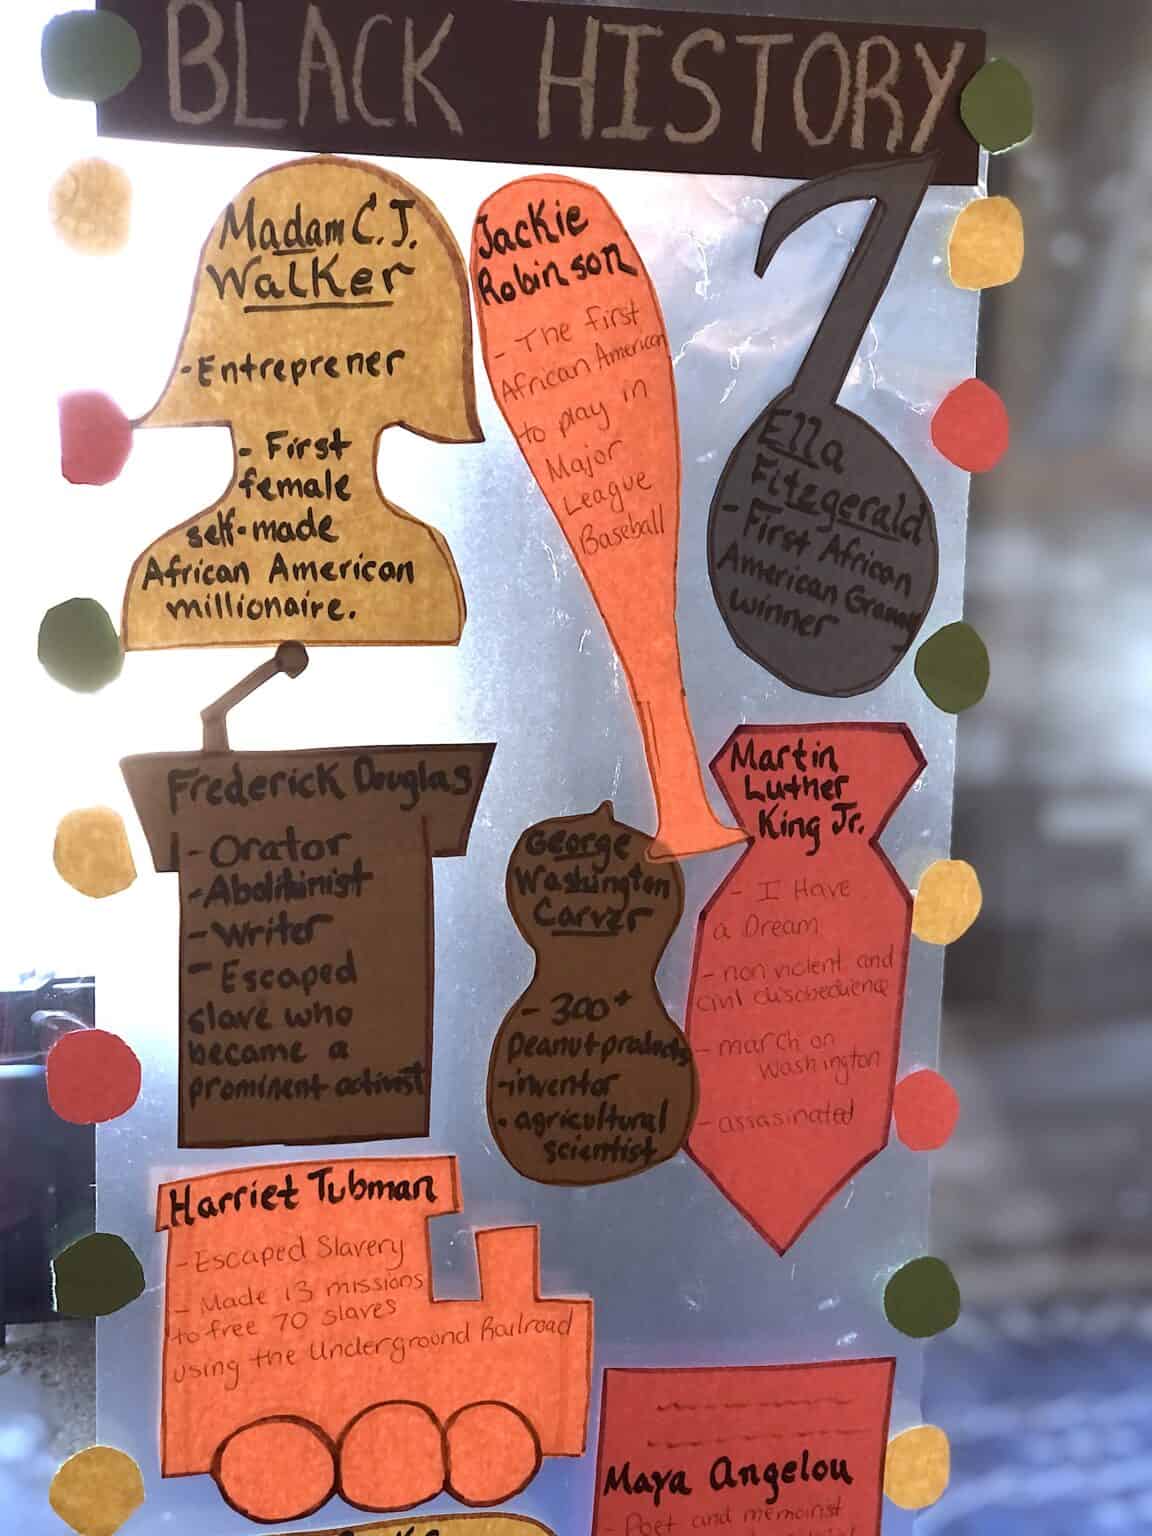 BLACK HISTORY
Madam C.J.
Walker
- Entreprener
- First
female
self-made
African American
millionaire.
Jackie
Robinson
- The first
African American
to play in
Major
League
Baseball
Ella
Fitzgerald
- First African
American Grammy
winner
Frederick Douglas
- Orator
- Abolitinist
- Writer
- Escaped
slave who
became a
prominent activist
George
Washington
Carver
- 300+
Peanut products
- inventor
- agricultural
scientist
Martin
Luther
King Jr.
- I Have
a Dream
- non violent and
civil disobedience
- march on
Washington
- assasinated
Harriet Tubman
- Escaped Slavery
- Made 13 missions
to free 70 slaves
using the Underground Railroad
Maya Angelou
- Poet and memoirist